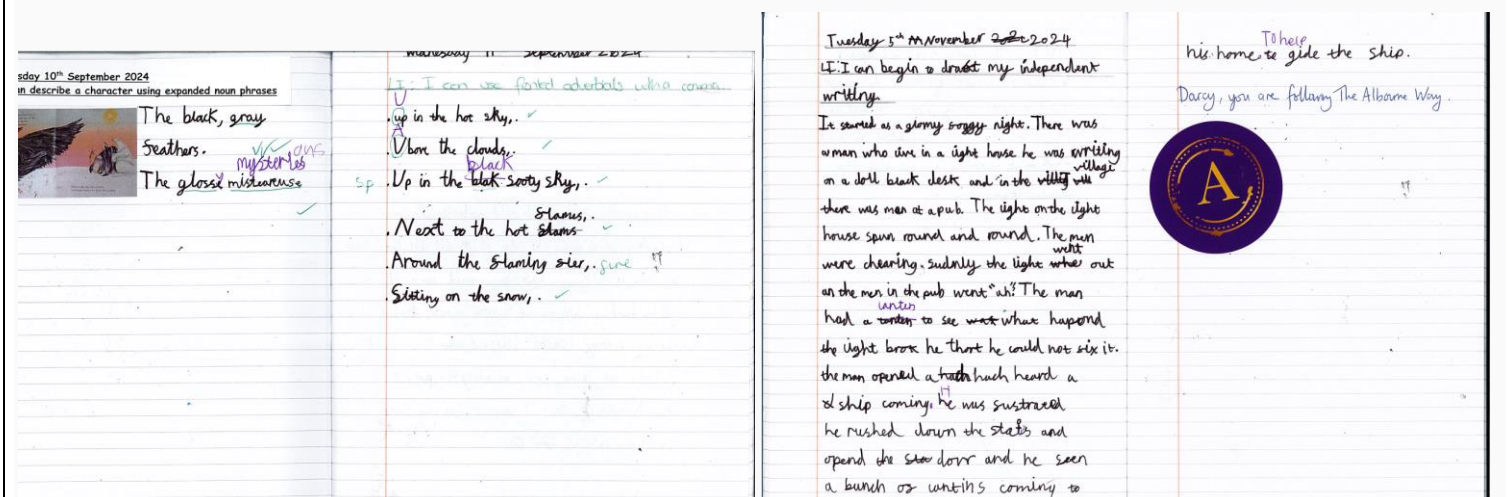 sday 10th September 2024
n describe a character using expanded noun phrases
The black, gray
feathers.
mysteries ous
The glosse mistearuse
Wednesday 11 September 2024
LI: I can use fronted adverbials with a comma.
U
.up in the hot sky,.
A
.Ubove the clouds,.
black
sp .Up in the blak sooty sky,.
flames,.
.Next to the hot flams
.Around the flaming fier,. fire
.Sitting on the snow,.
Tuesday 5th November 2024
LI: I can begin to draft my independent
writing.
It started as a glomy foggy night. There was
a man who live in a light house he was writing
village
on a doll black desk and in the
there was men at a pub. The light on the light
house spun round and round. The men
went
were chearing. sudnly the light out
an the men in the pub went "ah". The man
lanten
had a to see what hapond
the light brok he thort he could not fix it.
the man opened a hach heard a
ship coming. he was fustrated
H
he rushed down the stairs and
opend the dorr and he seen
a bunch of lantins coming to
To help
his home to gide the ship.
Darcy, you are following The Albourne Way.
A